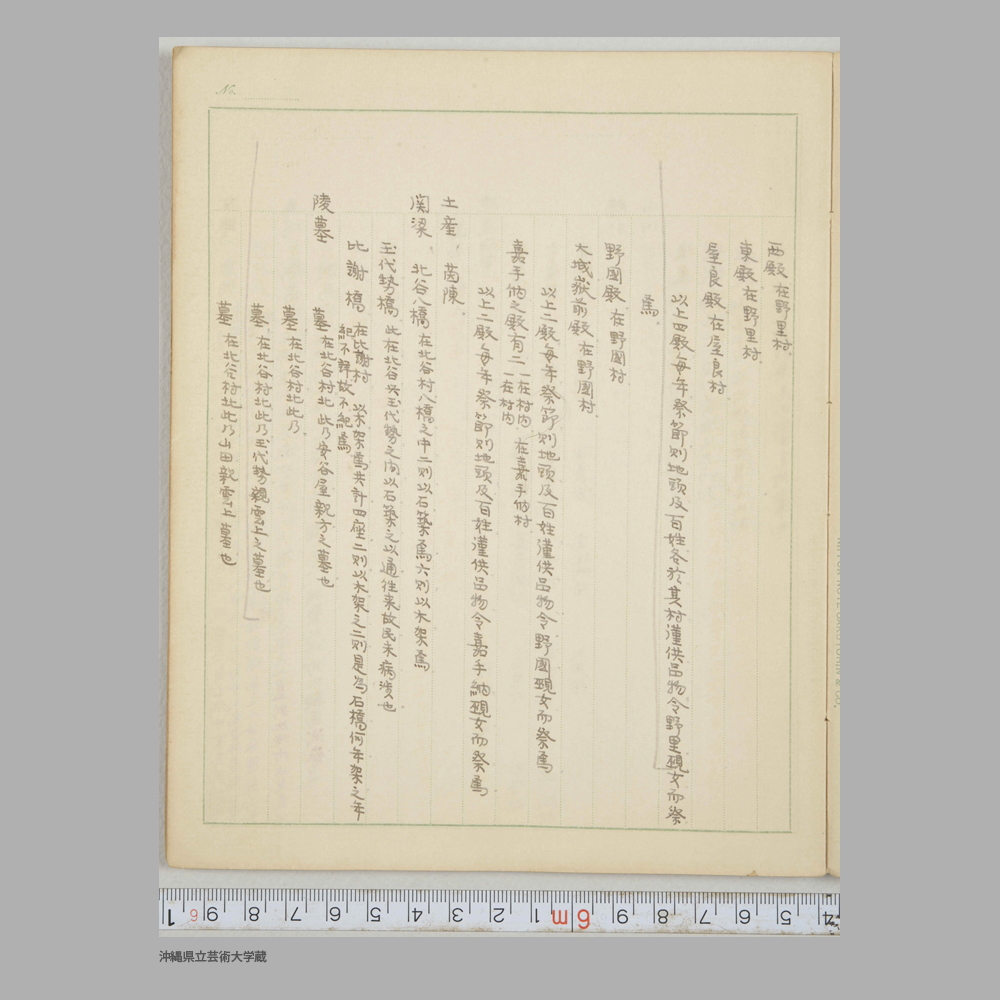 No.
西殿 在野里村
東殿 在野里村
屋良殿 在屋良村
以上四殿毎年祭節則地頭及百姓各於其村謹供品物令野里覡女而祭
焉
野國殿 在野国村
大城嶽前殿 在野国村
以上二殿毎年祭節則地頭及百姓謹供品物令野国覡女而祭焉
嘉手納之殿有二 一在村内 一在村内 在嘉手納村
以上二殿毎年祭節則地頭及百姓謹供品物令嘉手納覡女而祭焉
土産 茵陳
関梁 北谷八橋 在北谷村八橋之中二則以石築焉六則以木架焉
玉代勢橋 此在北谷与玉代勢之間以石築之以通往来故民未病渉也
比謝橋 在比謝村 以木架焉共計四座二則以木架之二則是為石橋何年架之年
紀不詳故不紀焉
陵墓
墓 在北谷村北 此乃安谷屋親方之墓也
墓 在北谷村北此乃
墓 在北谷村北此乃玉代勢親雲上之墓也
墓 在北谷村北此乃山田親雲上墓也
1 6 9 8 7 6 5 4 3 2 1 6m 9 8 7 6 5 4
沖縄県立芸術大学蔵